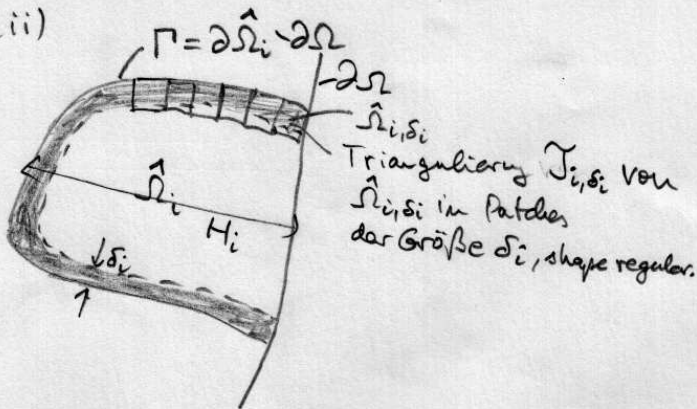 ii)
Γ = ∂Ω̂ᵢ - ∂Ω
-∂Ω
Ω̂ᵢ,δᵢ
Triangulierung 𝒯ᵢ,δᵢ von
Ω̂ᵢ,δᵢ in Patches
der Größe δᵢ, shape regular.
Ω̂ᵢ
Hᵢ
δᵢ